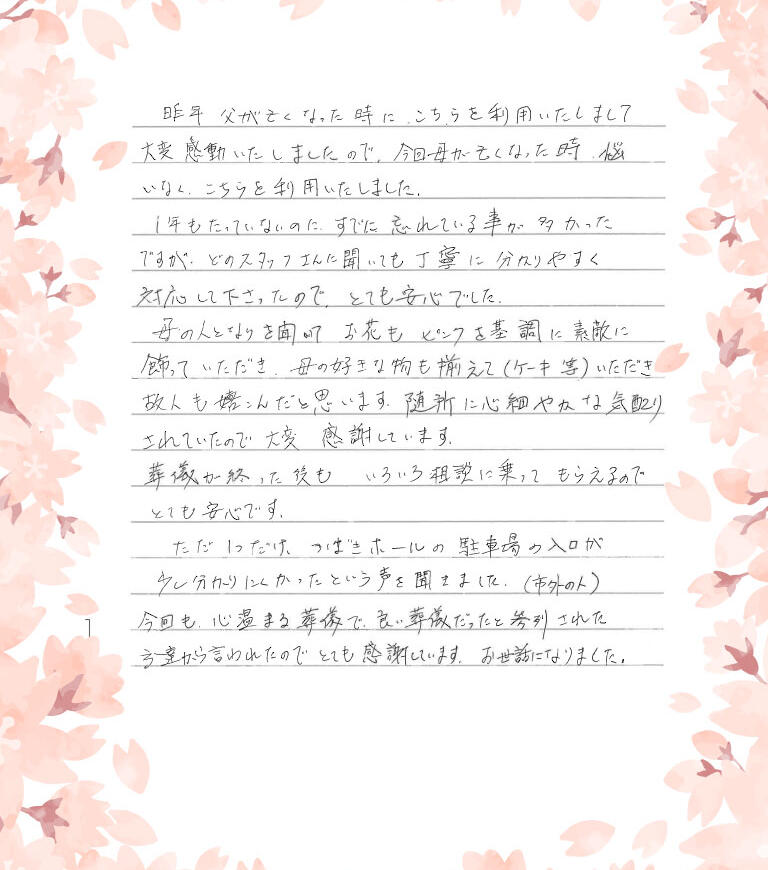 昨年 父が亡くなった時に、こちらを利用いたしまして
大変 感動いたしましたので、今回母が亡くなった時、悩
いなく、こちらを利用いたしました。
1年もたっていないのに、すでに忘れている事が多かった
ですが、どのスタッフさんに聞いても丁寧に分かりやすく
対応して下さったので、とても安心でした。
母の人となりを聞いて お花も ピンクを基調に素敵に
飾っていただき、母の好きな物も揃えて(ケーキ等)いただき
故人も嬉こんだと思います。随所に心細やかな気配り
されていたので 大変 感謝しています。
葬儀が終った後も いろいろ相談に乗って もらえるので
とても安心です。
ただ1つだけ、つばきホールの駐車場の入口が
少し分かりにくかったという声を聞きました。(市外の人)
今回も、心温まる葬儀で、良い葬儀だったと参列された
方達から言われたので とても感謝しています。お世話になりました。
1